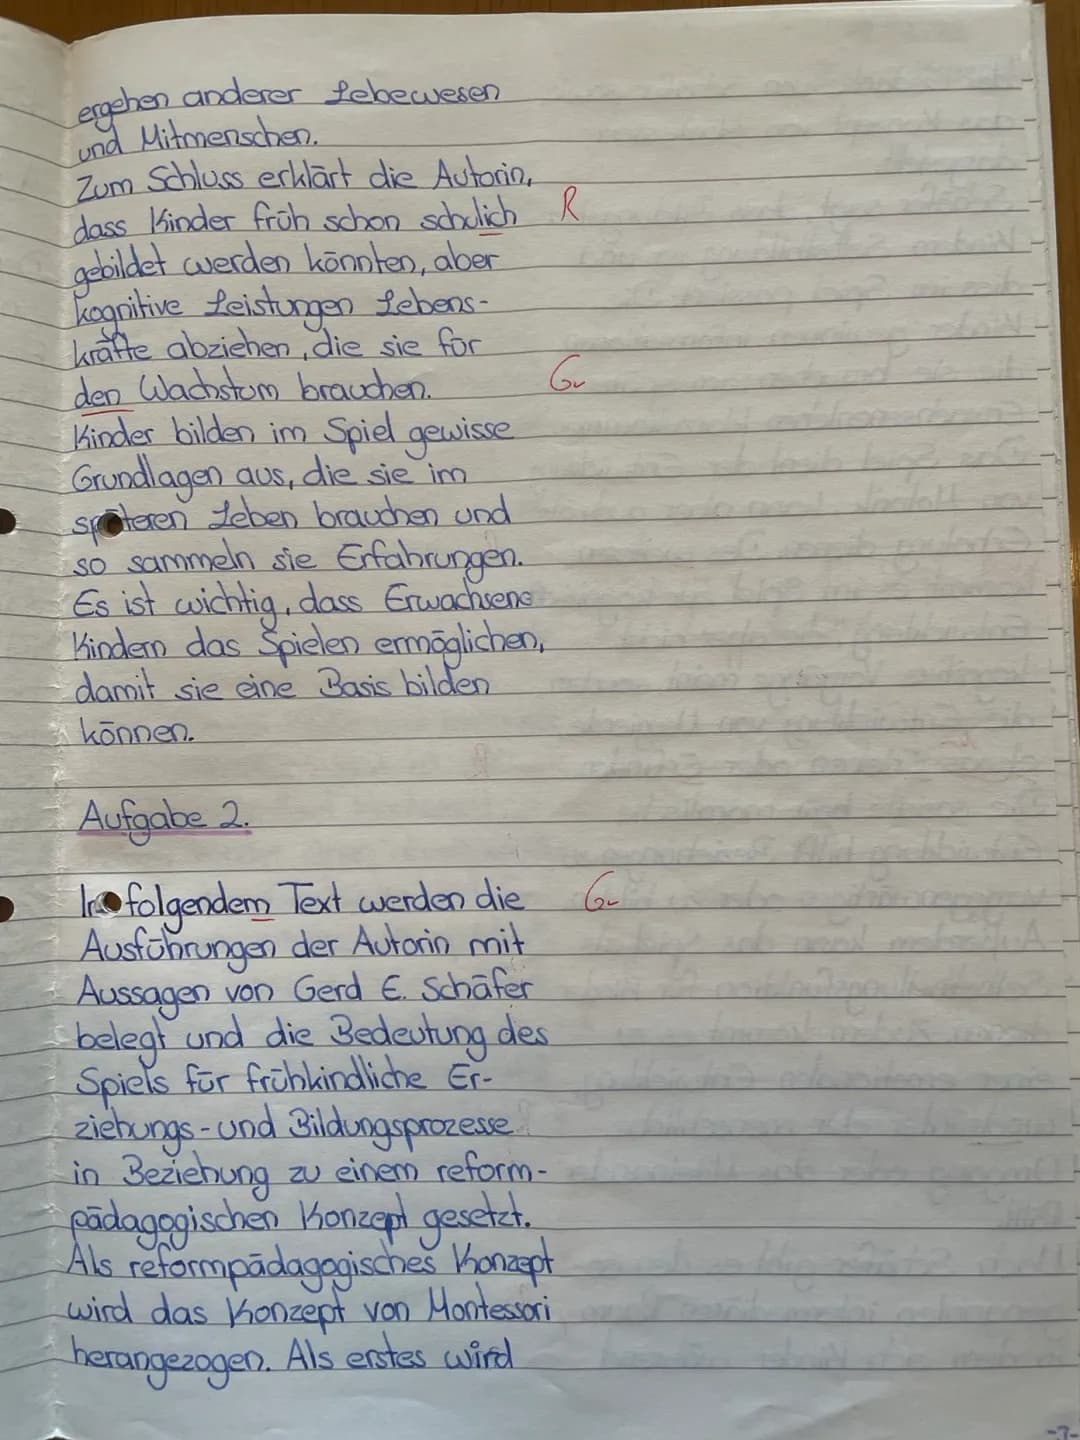 ergehen anderer Lebewesen
und Mitmenschen.
Zum Schluss erklärt die Autorin,
dass Kinder früh schon schulich R
gebildet werden könnten, aber
kognitive Leistungen Lebens-
kräfte abziehen, die sie für
den Wachstum brauchen. Gr
Kinder bilden im Spiel gewisse
Grundlagen aus, die sie im
späteren Leben brauchen und
so sammeln sie Erfahrungen.
Es ist wichtig, dass Erwachsene
Kindern das Spielen ermöglichen,
damit sie eine Basis bilden
können.
Aufgabe 2.
In folgendem Text werden die Gr
Ausführungen der Autorin mit
Aussagen von Gerd E. Schäfer
belegt und die Bedeutung des
Spiels für frühkindliche Er-
ziehungs- und Bildungsprozesse
in Beziehung zu einem reform-
pädagogischen Konzept gesetzt.
Als reformpädagogisches Konzept
wird das Konzept von Montessori
herangezogen. Als erstes wird
-7-